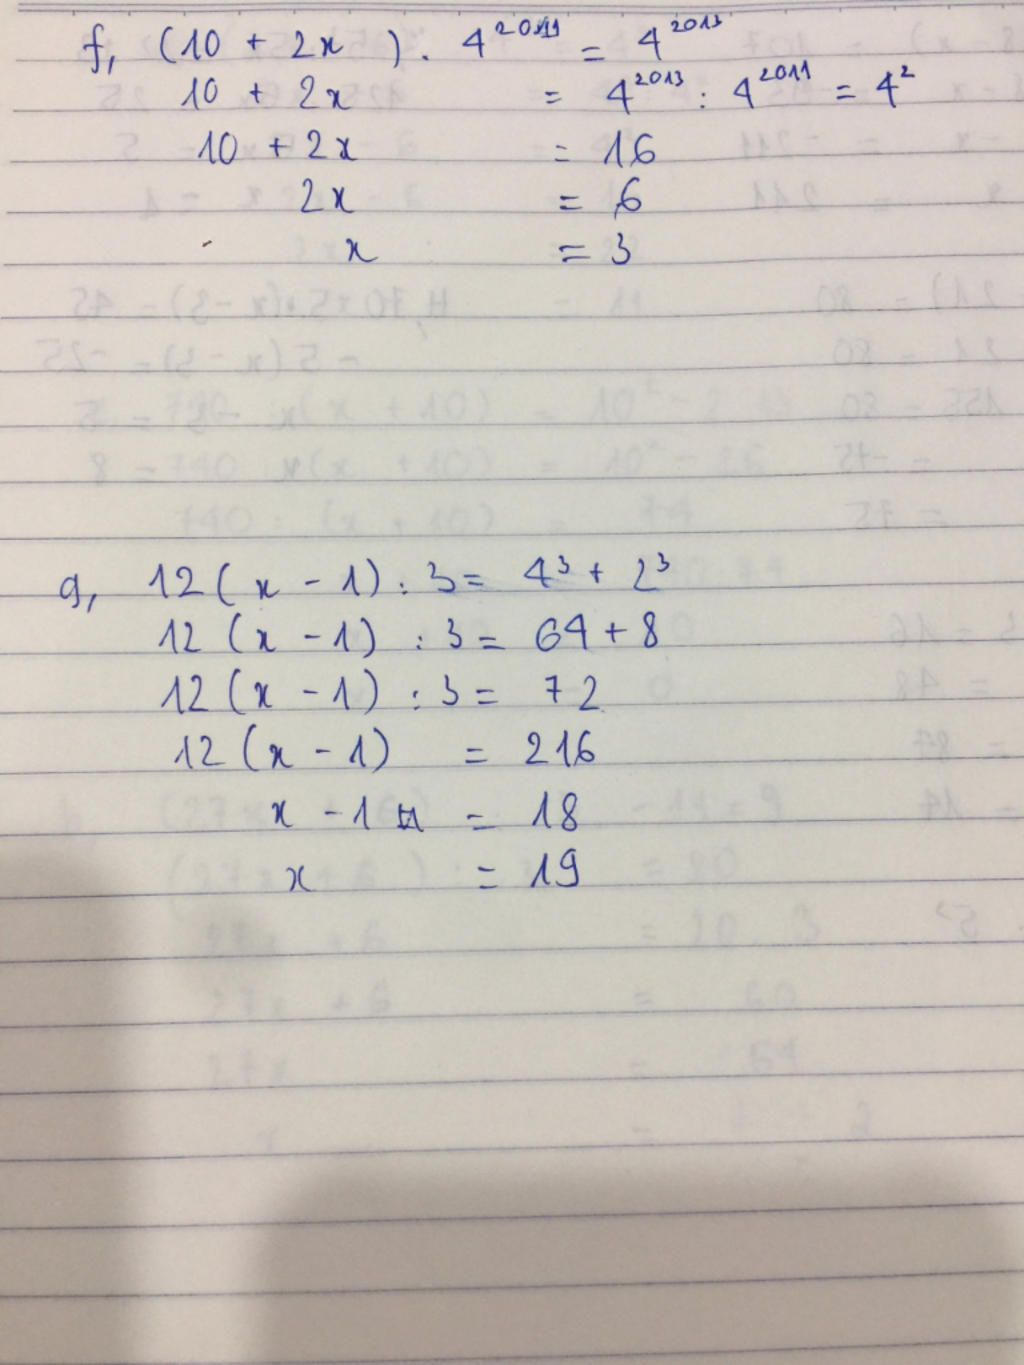 f, (10 + 2x) . 4²⁰¹¹ = 4²⁰¹³
10 + 2x = 4²⁰¹³ : 4²⁰¹¹ = 4²
10 + 2x = 16
2x = 6
x = 3
g, 12(x - 1) : 3 = 4³ + 2³
12(x - 1) : 3 = 64 + 8
12(x - 1) : 3 = 72
12(x - 1) = 216
x - 1 = 18
x = 19